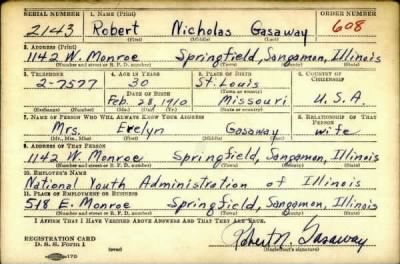 SERIAL NUMBER 1. NAME (Print) ORDER NUMBER
2143 Robert Nicholas Gasaway 608
(First) (Middle) (Last)
2. ADDRESS (Print)
1142 W. Monroe Springfield, Sangamon, Illinois
(Number and street or R. F. D. number) (Town) (County) (State)
3. TELEPHONE 4. AGE IN YEARS 5. PLACE OF BIRTH 6. COUNTRY OF CITIZENSHIP
2-7577 30 St. Louis
DATE OF BIRTH (Town or county)
Feb. 28, 1910 Missouri U.S.A.
(Exchange) (Number) (Mo.) (Day) (Yr.) (State or country)
7. NAME OF PERSON WHO WILL ALWAYS KNOW YOUR ADDRESS 8. RELATIONSHIP OF THAT PERSON
Mrs. Evelyn Gasaway wife
(Mr., Mrs., Miss) (First) (Middle) (Last)
9. ADDRESS OF THAT PERSON
1142 W. Monroe Springfield, Sangamon, Illinois
(Number and street or R. F. D. number) (Town) (County) (State)
10. EMPLOYER'S NAME
National Youth Administration of Illinois
11. PLACE OF EMPLOYMENT OR BUSINESS
518 E. Monroe Springfield, Sangamon, Illinois
(Number and street or R. F. D. number) (Town) (County) (State)
I AFFIRM THAT I HAVE VERIFIED ABOVE ANSWERS AND THAT THEY ARE TRUE.
REGISTRATION CARD
D. S. S. Form 1 Robert N. Gasaway
(Registrant's signature)